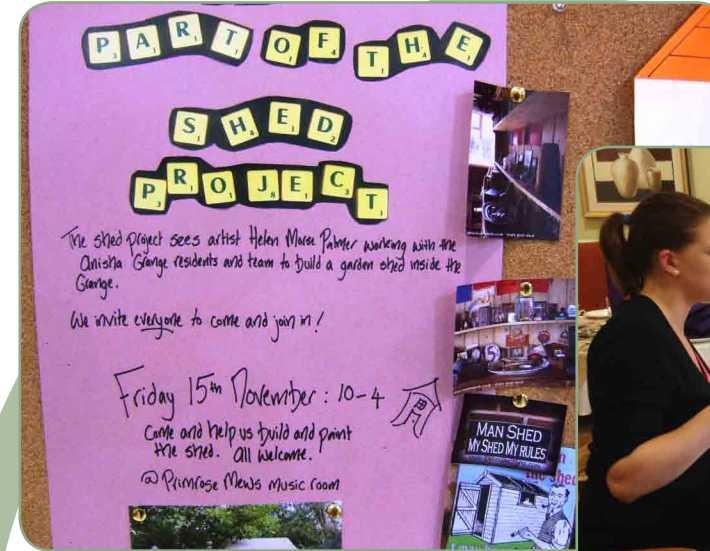 PART OF THE
SHED
PROJECT
The shed project sees artist Helen Morse Palmer working with the
Anisha Grange residents and team to build a garden shed inside the
Grange.
We invite everyone to come and join in!
Friday 15th November: 10-4
Come and help us build and paint
the shed. All welcome.
@ Primrose Mews music room
MAN SHED
MY SHED MY RULES
the shed